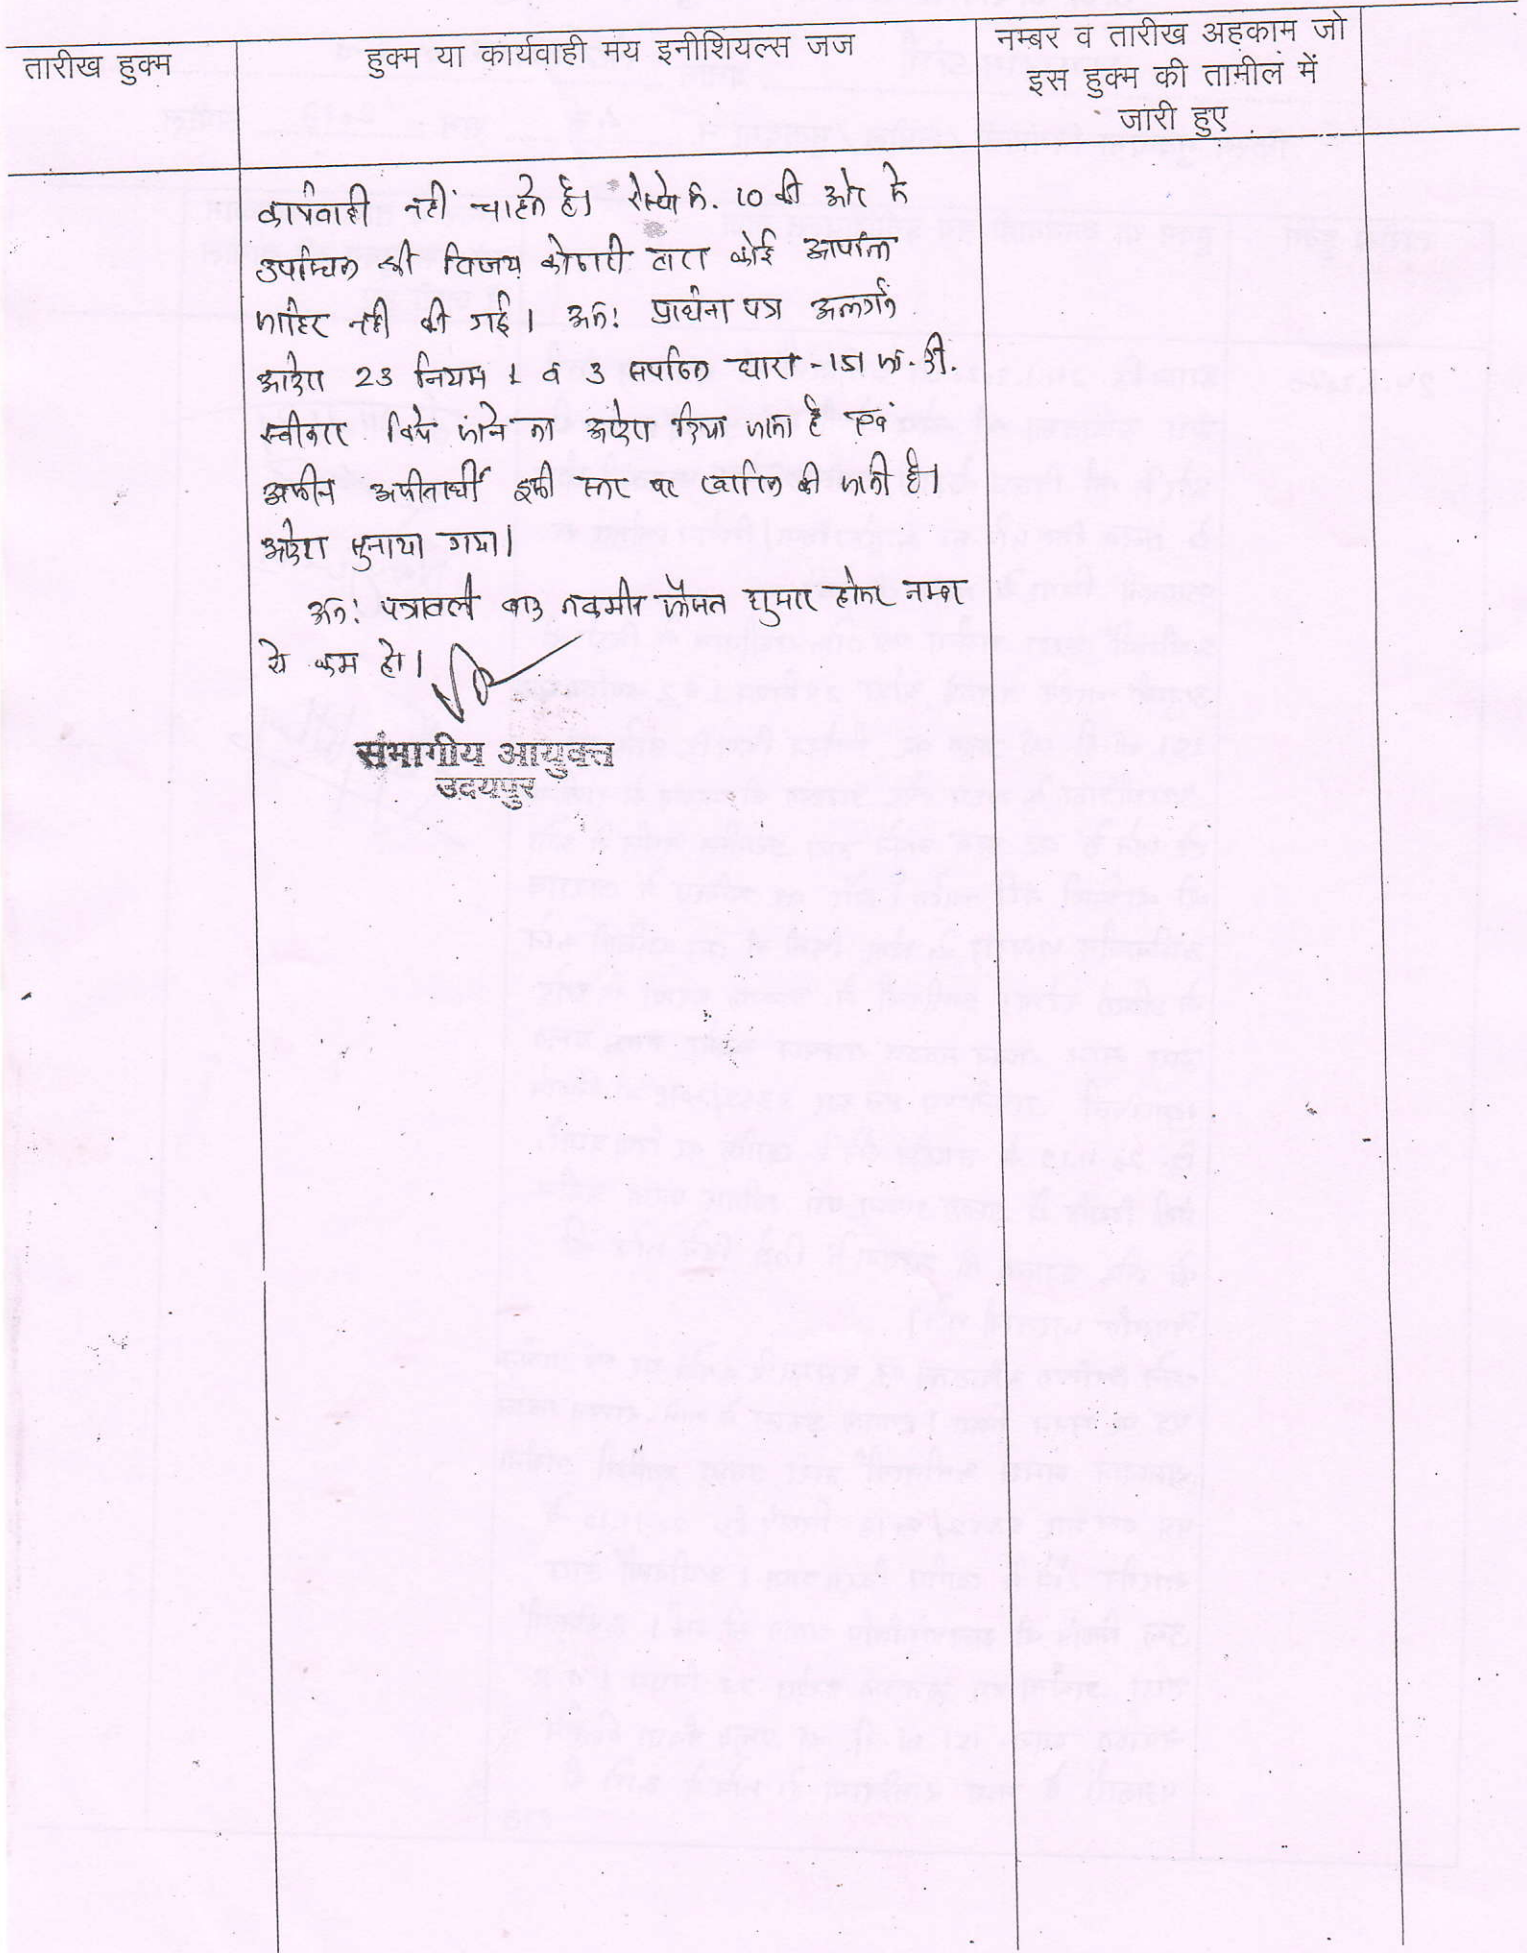 तारीख हुक्म
हुक्म या कार्यवाही मय इनीशियल्स जज
नम्बर व तारीख अहकाम जो
इस हुक्म की तामील में
जारी हुए
कार्यवाही नहीं चाहते है। रेस्पो क्र. 10 की ओर से
उपस्थित श्री विजय कोठारी द्वारा कोई आपत्ति
जाहिर नही की गई। अतः प्रार्थना पत्र अन्तर्गत
आदेश 23 नियम 1 व 3 सपठित धारा - 151 जा. दी.
स्वीकार किये जाने का आदेश दिया जाता है एवं
अपील अपीलार्थी इसी स्तर पर खारिज की जाती है।
आदेश सुनाया गया।
अतः पत्रावली बाद तकमील फैसल शुमार होकर नम्बर
से कम हो।
संभागीय आयुक्त
उदयपुर